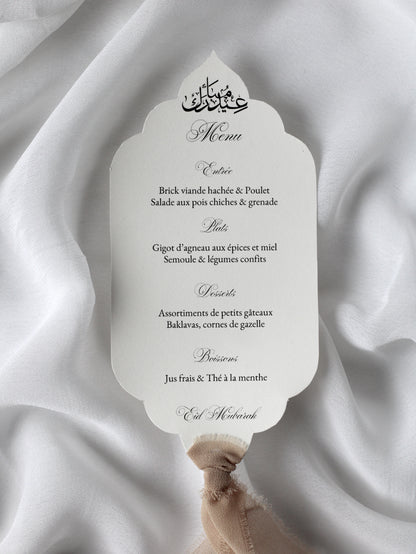 عيد مبارك
Menu
Entrée
Brick viande hachée & Poulet
Salade aux pois chiches & grenade
Plats
Gigot d'agneau aux épices et miel
Semoule & légumes confits
Desserts
Assortiments de petits gâteaux
Baklavas, cornes de gazelle
Boissons
Jus frais & Thé à la menthe
Eid Mubarak